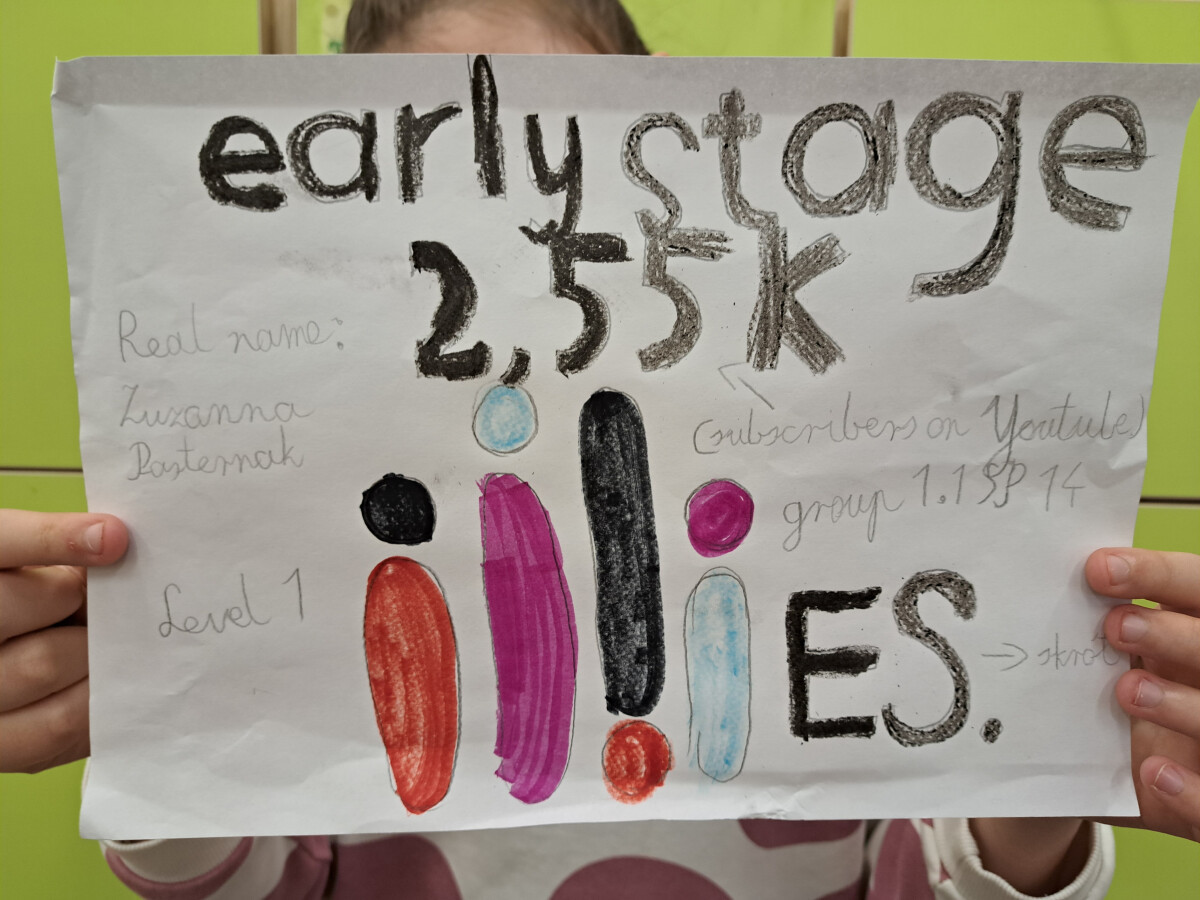 early stage
2,55K
(subscribers on Youtube)
Real name:
Zuzanna
Pasternak
group 1.1 SP 14
Level 1
ES.
→ skrót